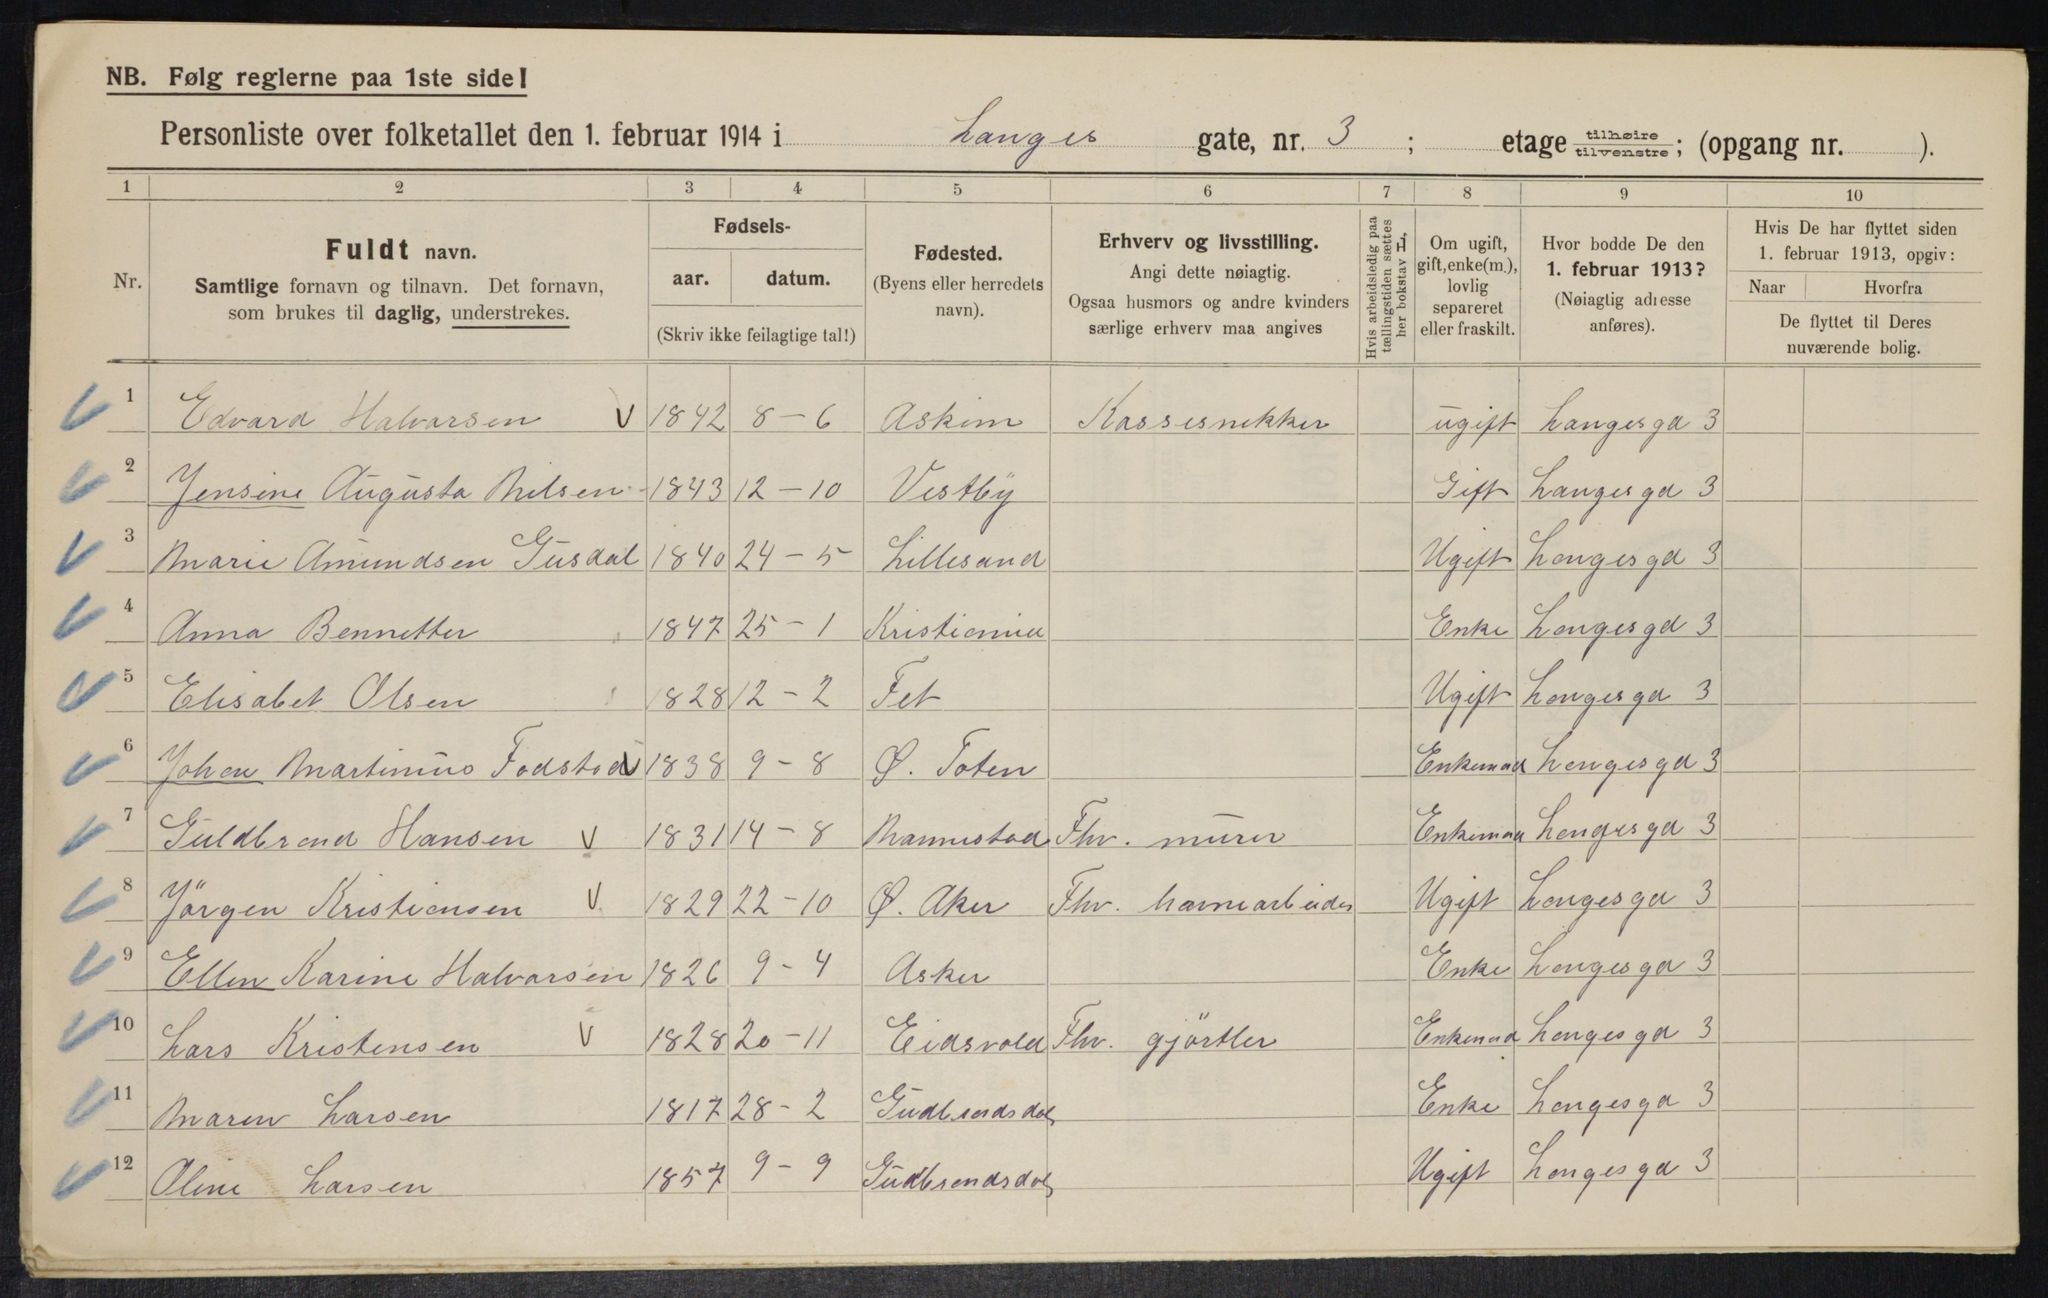 NB. Følg reglerne paa 1ste side!
Personliste over folketallet den 1. februar 1914 i Langes gate, nr. 3 ; etage tilhøire tilvenstre ; (opgang nr. ).
1 2 3 4 5 6 7 8 9 10
Nr.
Fuldt navn.
Samtlige fornavn og tilnavn. Det fornavn,
som brukes til daglig, understrekes.
Fødsels-
aar. datum.
(Skriv ikke feilagtige tal!)
Fødested.
(Byens eller herredets
navn).
Erhverv og livsstilling.
Angi dette nøiagtig.
Ogsaa husmors og andre kvinders
særlige erhverv maa angives
Hvis arbeidsledig paa
tællingstiden sættes
her bokstav L,
Om ugift,
gift, enke(m.),
lovlig
separeret
eller fraskilt.
Hvor bodde De den
1. februar 1913?
(Nøiagtig adresse
anføres).
Hvis De har flyttet siden
1. februar 1913, opgiv:
Naar Hvorfra
De flyttet til Deres
nuværende bolig.
1 Edvard Halvorsen V 1842 8-6 Askim Kassesnekker ugift Langesgd 3
2 Jensine Augusta Nilsen 1843 12-10 Vestby Gift Langesgd 3
3 Marie Amundsen Gusdal 1840 24-5 Lillesand Ugift Langesgd 3
4 Anna Bennetter 1847 25-1 Kristiania Enke Langesgd 3
5 Elisabet Olsen 1828 12-2 Fet Ugift Langesgd 3
6 Johan Martinius Fodstad V 1838 9-8 Ø. Toten Enkemad Langesgd 3
7 Guldbrand Hansen V 1831 14-8 Nannestad Fhv. murer Enkemad Langesgd 3
8 Jörgen Kristiansen V 1829 22-10 Ø. Aker Fhv. havnearbeider Ugift Langesgd 3
9 Ellen Karine Halvorsen 1826 9-4 Asker Enke Langesgd 3
10 Lars Kristensen V 1828 20-11 Eidsvold Fhv. gjörtler Enkemad Langesgd 3
11 Maren Larsen 1817 28-2 Gudbrandsdal Enke Langesgd 3
12 Oline Larsen 1857 9-9 Gudbrandsdal Ugift Langesgd 3